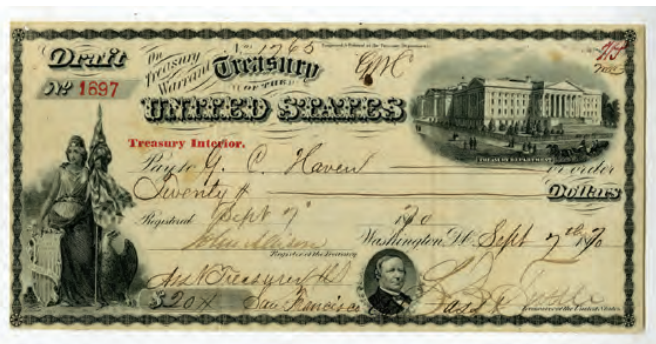 Draft
Nº 1697
On Treasury Warrant No. 1765
Treasury
OF THE
UNITED STATES
Treasury Interior.
TREASURY DEPARTMENT
Pay to G. C. Haven or order
Twenty Dollars
Registered Sept 7 1870
John Allison
Register of the Treasury
Washington, D.C. Sept 7th 1870
Asst Treasurer U.S.
$20 San Francisco
Treasurer of the United States.